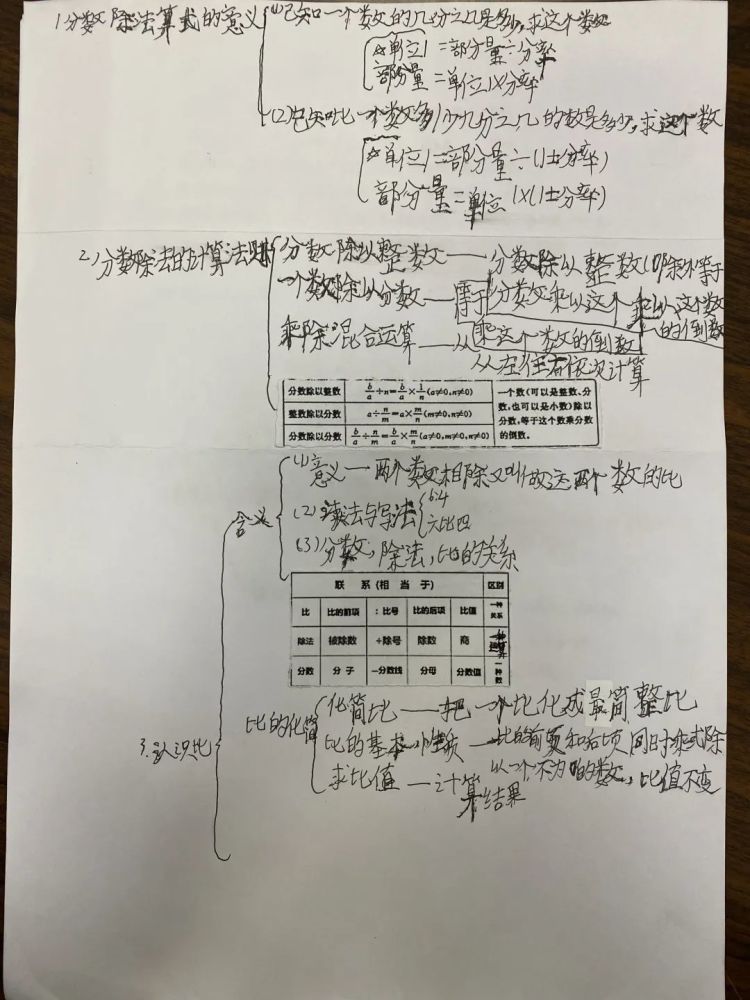 1分数除法算式的意义
(1)已知一个数的几分之几是多少,求这个数
☆单位1=部分量÷分率
部分量=单位1×分率
(2)已知比一个数多/少几分之几的数是多少,求这个数
☆单位1=部分量÷(1±分率)
部分量=单位1×(1±分率)
2)分数除法的计算法则
分数除以整数——分数除以整数(0除外)等于
分数乘以这个数的倒数
一个数除以分数——等于乘以这个数的倒数
乘这个数的倒数
乘除混合运算——从
从左往右依次计算
分数除以整数 b/a÷n=b/a×1/n(a≠0,n≠0)
整数除以分数 a÷n/m=a×m/n(m≠0,n≠0)
分数除以分数 b/a÷n/m=b/a×m/n(a≠0,m≠0,n≠0)
一个数(可以是整数、分
数,也可以是小数)除以
分数,等于这个数乘分数
的倒数。
3.认识比
含义
(1)意义—两个数相除又叫做这两个数的比
(2)读法与写法
6:4
六比四
(3)分数,除法,比的关系
联 系(相 当 于) 区别
比 比的前项 :比号 比的后项 比值 一种关系
除法 被除数 ÷除号 除数 商 一种运算
分数 分子 —分数线 分母 分数值 一种数
比的化简
化简比——把一个比化成最简整比
比的基本性质—比的前项和后项同时乘或除
以一个不为0的数,比值不变
求比值—计算结果